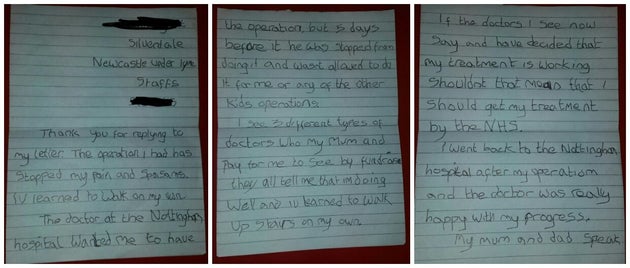 Silverdale
Newcastle under lyme
Staffs
Thank you for replying to
my letter. The operation I had has
stopped my pain and spasams.
IV learned to walk on my own
The doctor at the Nottingham
hospital wanted me to have
the operation, but 5 days
before it he was stopped from
doing it and wasnt allowed to do
It for me or any of the other
kids operations.
I see 3 different types of
doctors who my Mum and
Pay for me to see by fundraise
they all tell me that im doing
Well and iv learned to walk
up stairs on my own.
If the doctors I see now
Say and have decided that
my treatment is working
Shouldnt that mean that I
Should get my treatment
by the NHS.
I went back to the Nottingham
hospital after my operation
and the doctor was really
happy with my progress.
My mum and dad Speak